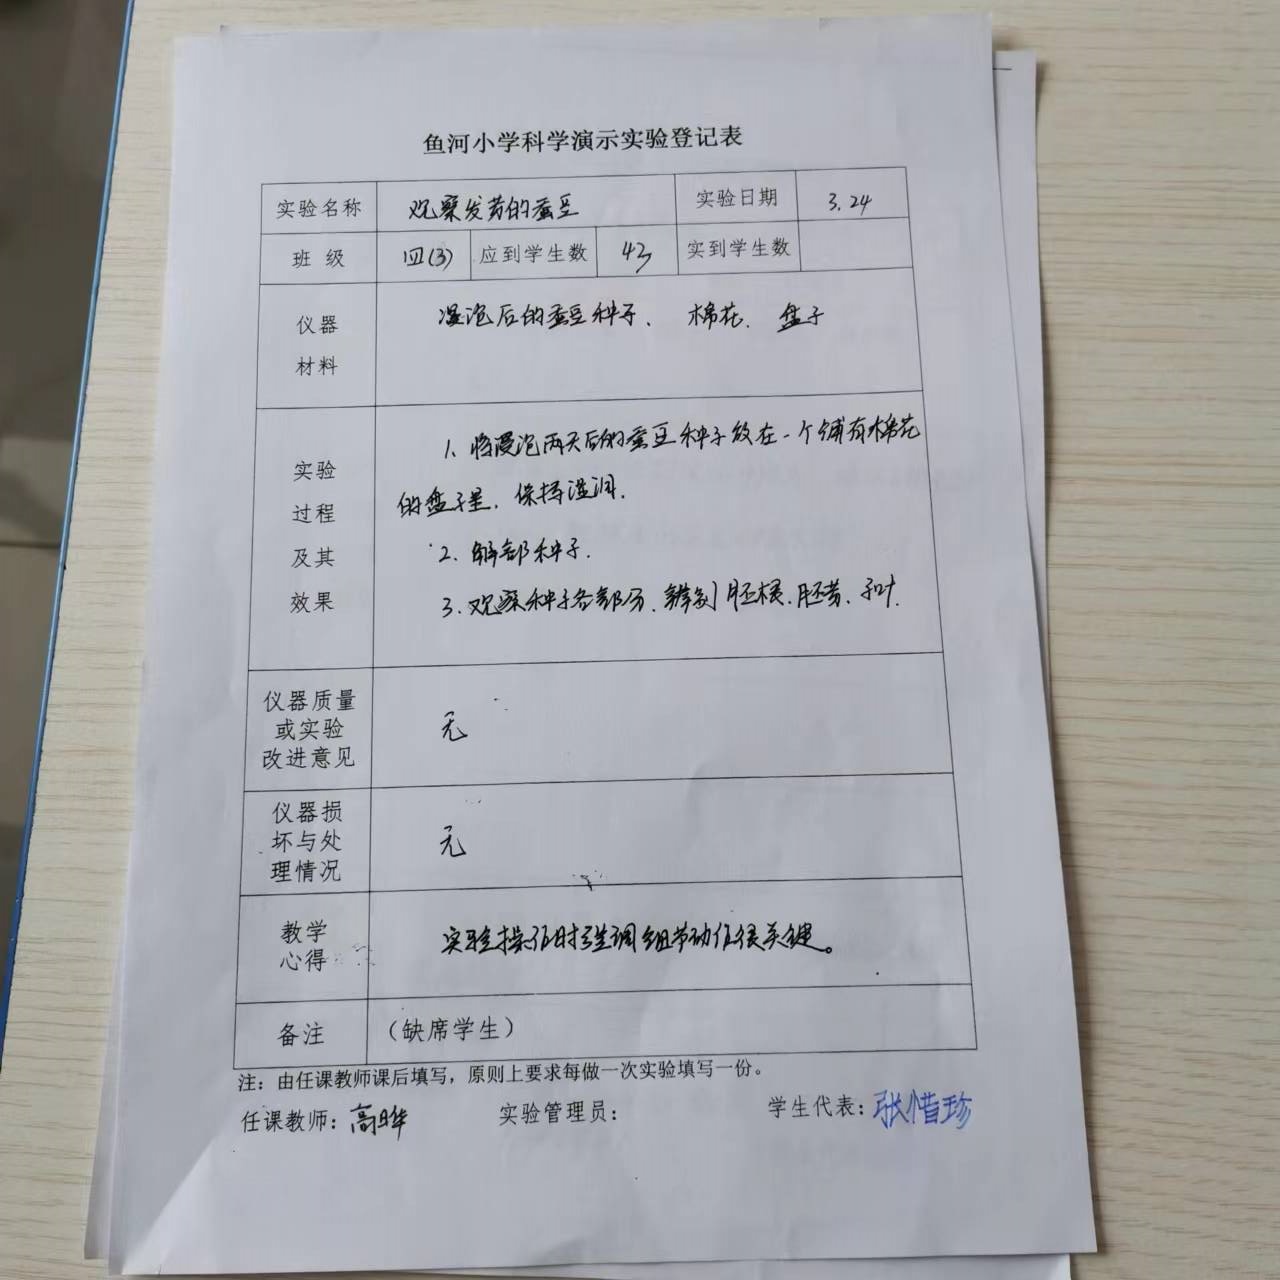 鱼河小学科学演示实验登记表
实验名称 观察发芽的蚕豆 实验日期 3.24
班级 四(3) 应到学生数 43 实到学生数
仪器 浸泡后的蚕豆种子、 棉花、 盘子
材料
1. 将浸泡两天后的蚕豆种子放在一个铺有棉花
实验
的盘子里，保持湿润.
过程
及其 2. 解部种子.
效果 3. 观察种子各部分，辨别胚根、胚芽、子叶.
仪器质量
或实验 无
改进意见
仪器损
坏与处 无
理情况
教学 实验操作时强调细节动作很关键。
心得
备注 （缺席学生）
注：由任课教师课后填写，原则上要求每做一次实验填写一份。
任课教师：高晔 实验管理员： 学生代表：张惜珍